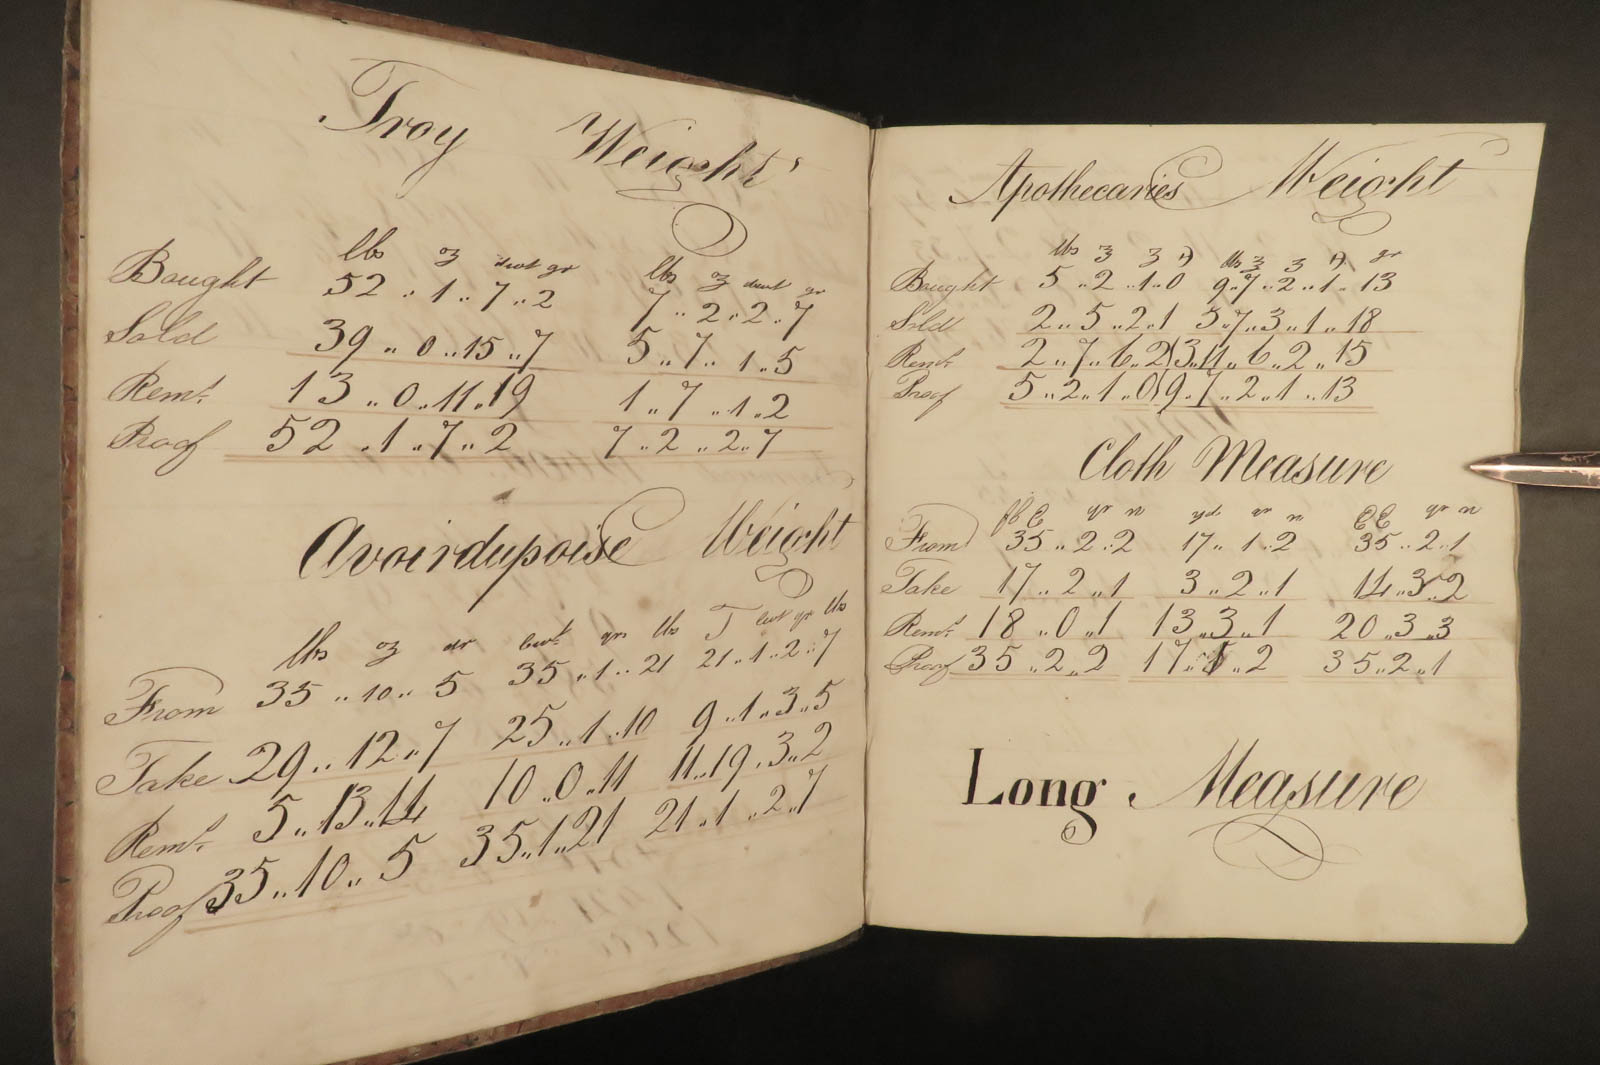 Troy Weight
lbs oz dwt gr lbs oz dwt gr
Bought 52 .. 1 .. 7 .. 2 7 .. 2 .. 2 .. 7
Sold 39 .. 0 .. 15 .. 7 5 .. 7 .. 1 .. 5
Remr. 13 .. 0 .. 11 .. 19 1 .. 7 .. 1 .. 2
Proof 52 .. 1 .. 7 .. 2 7 .. 2 .. 2 .. 7
Avoirdupoise Weight
lbs oz dr cwt. qrs lbs T cwt qr lbs
From 35 .. 10 .. 5 35 .. 1 .. 21 21 .. 1 .. 2 .. 7
Take 29 .. 12 .. 7 25 .. 1 .. 10 9 .. 1 .. 3 .. 5
Remr. 5 .. 13 .. 14 10 .. 0 .. 11 11 .. 19 .. 3 .. 2
Proof 35 .. 10 .. 5 35 .. 1 .. 21 21 .. 1 .. 2 .. 7
Apothecaries Weight
lbs ℥ ʒ ℈ lbs ℥ ʒ ℈ gr
Bought 5 .. 2 .. 1 .. 0 9 .. 7 .. 2 .. 1 .. 13
Sold 2 .. 5 .. 2 .. 1 5 .. 7 .. 3 .. 1 .. 18
Remr. 2 .. 7 .. 6 .. 2 3 .. 11 .. 6 .. 2 .. 15
Proof 5 .. 2 .. 1 .. 0 9 .. 7 .. 2 .. 1 .. 13
Cloth Measure
fl E qr n yds qr n EE qr n
From 35 .. 2 .. 2 17 .. 1 .. 2 35 .. 2 .. 1
Take 17 .. 2 .. 1 3 .. 2 .. 1 14 .. 3 .. 2
Remr. 18 .. 0 .. 1 13 .. 3 .. 1 20 .. 3 .. 3
Proof 35 .. 2 .. 2 17 .. .. 2 35 .. 2 .. 1
Long Measure